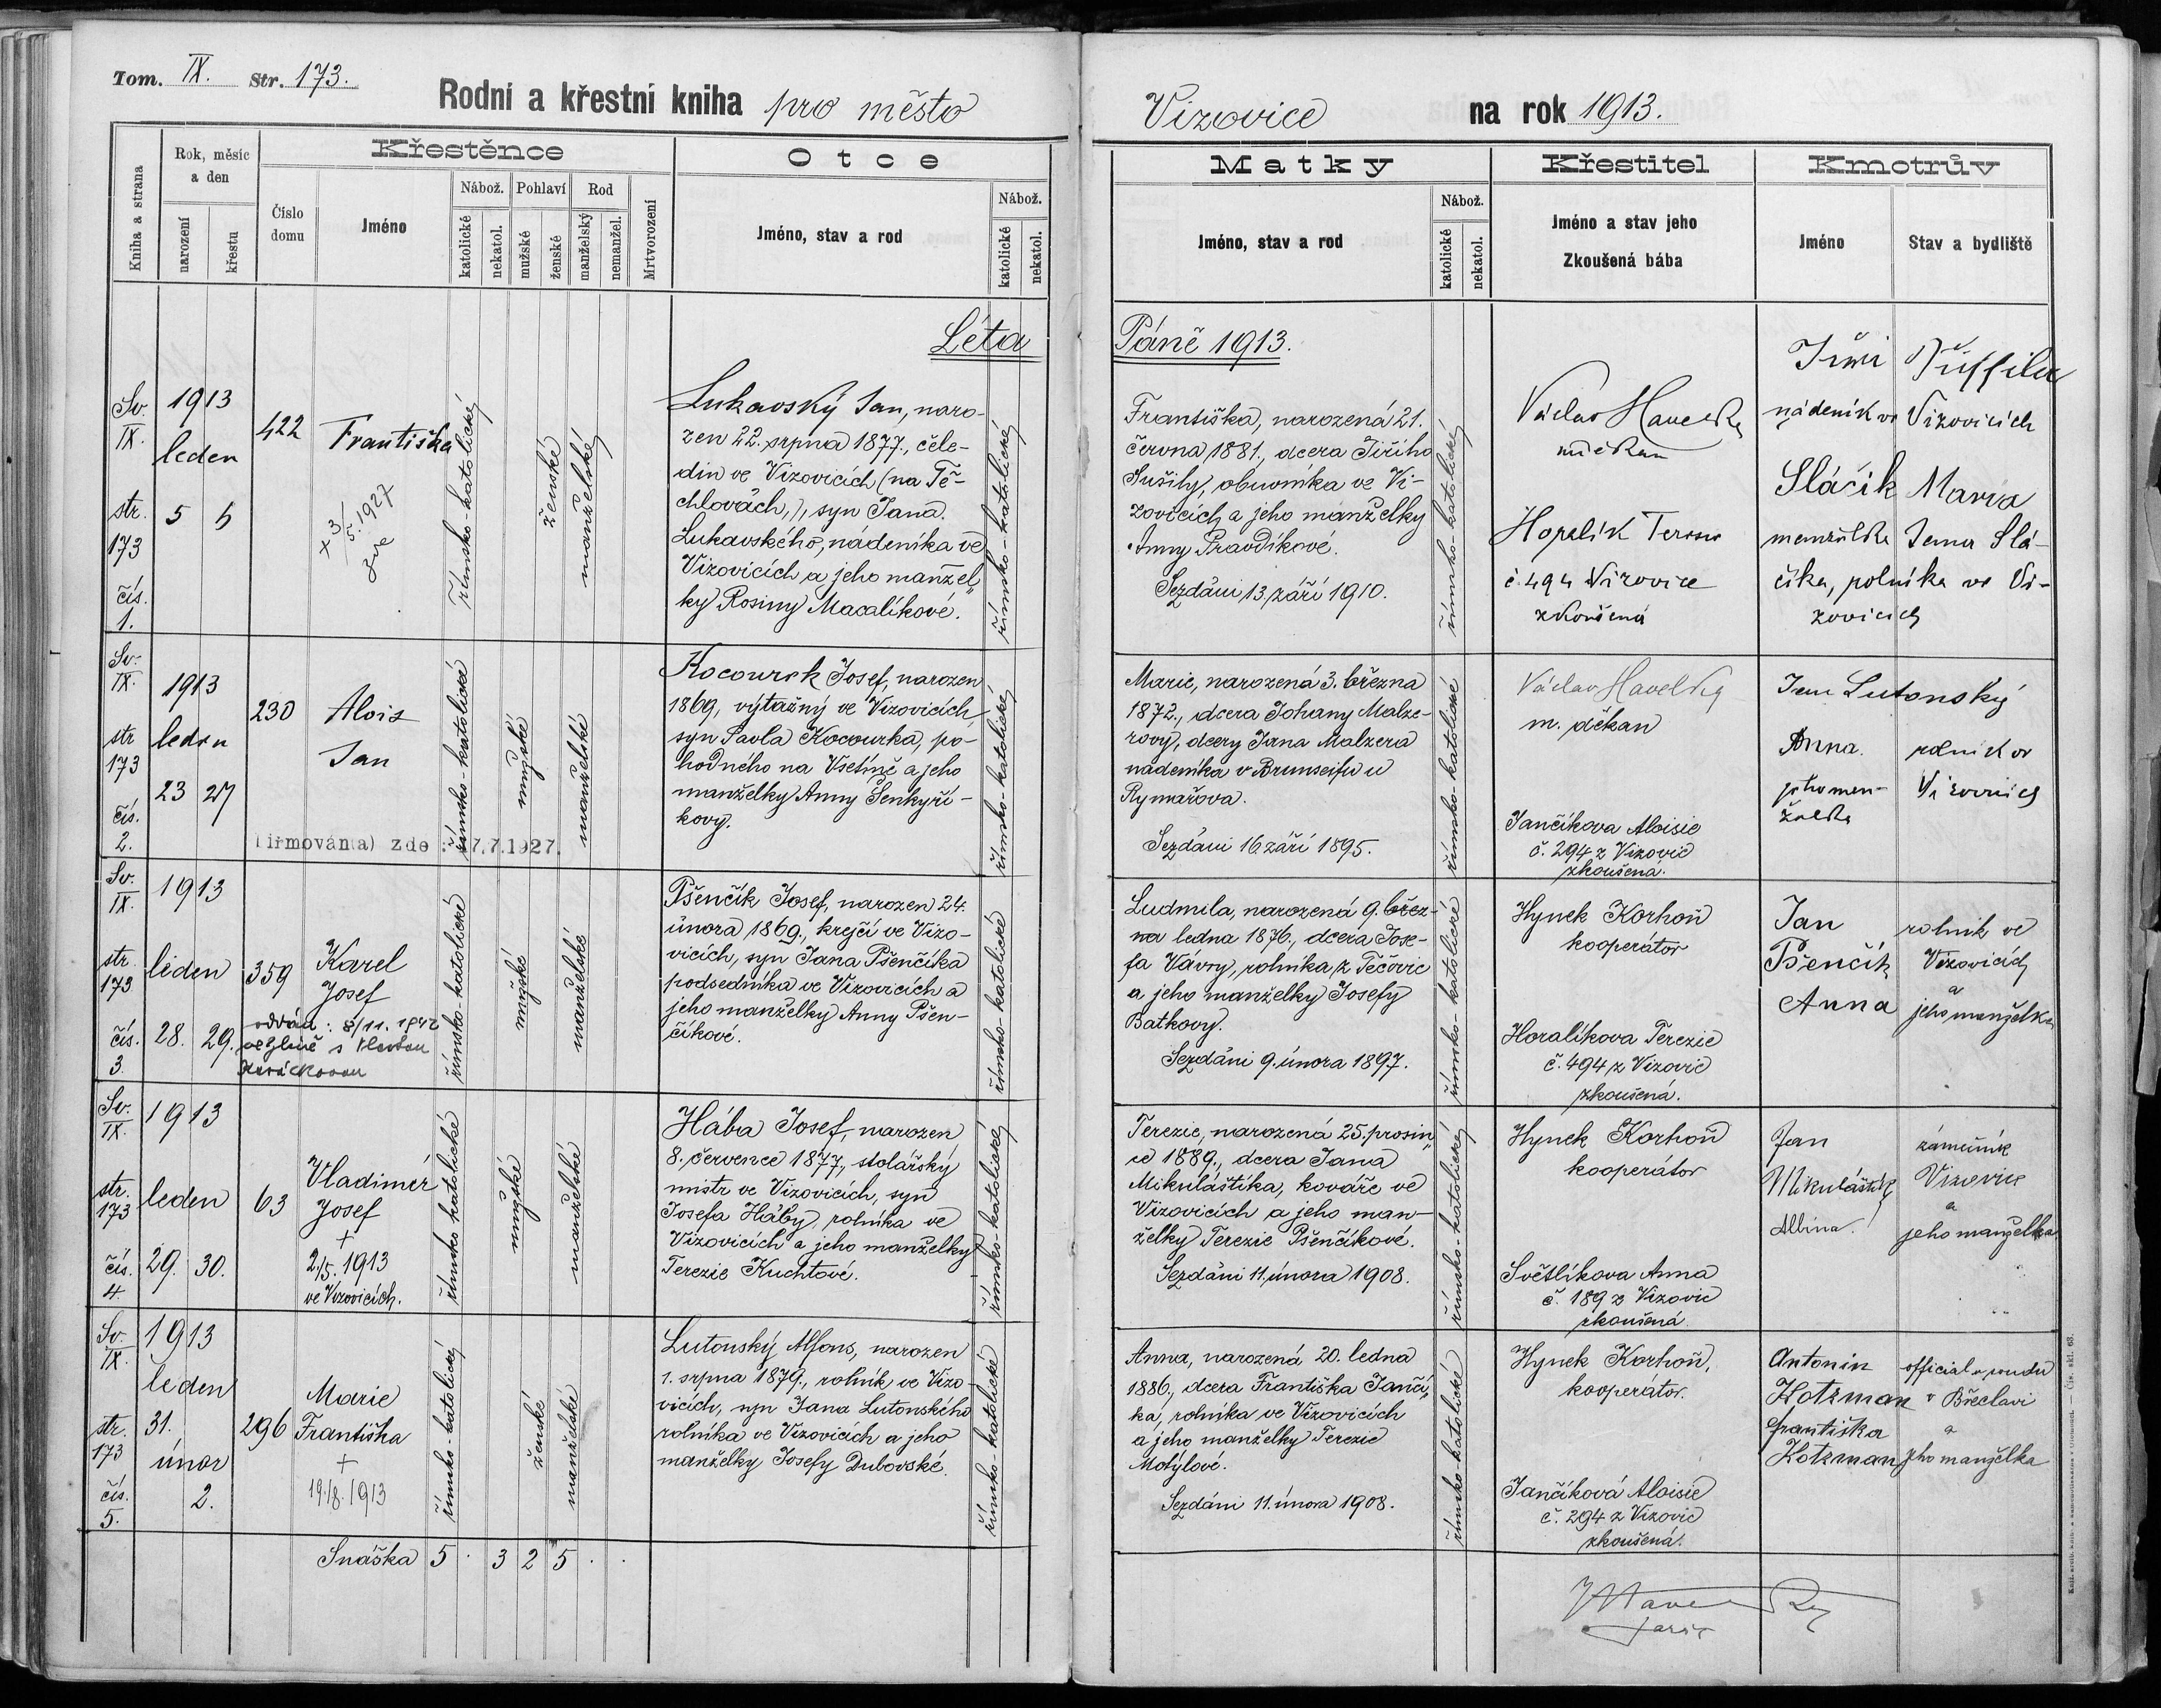 Tom. IX. Str. 173.
Rodní a křestní kniha pro město
Vizovice na rok 1913.
Kniha a strana
Rok, měsíc a den
narození
křestu
Křestěnce
Číslo domu
Jméno
Nábož.
katolické
nekatol.
Pohlaví
mužské
ženské
Rod
manželský
nemanžel.
Mrtvorození
Otce
Jméno, stav a rod
Nábož.
katolické
nekatol.
Matky
Jméno, stav a rod
Nábož.
katolické
nekatol.
Křestitel
Jméno a stav jeho
Zkoušená bába
Kmotrův
Jméno
Stav a bydliště
Léta Páně 1913.
Sv. IX.
str. 173
čís. 1.
1913
leden
5 5
422
Františka
x 3/5. 1927
římsko-katolické
ženské
manželské
Lukavský Jan, naro-
zen 22. srpna 1877., čele-
dín ve Vizovicích (na Tě-
chlovách,), syn Jana
Lukavského, nádeníka ve
Vizovicích a jeho manžel„
ky Rosiny Macalíkové.
římsko-katolické
Františka, narozená 21.
června 1881., dcera Jiřího
Sušily, obuvníka ve Vi-
zovicích a jeho manželky
Anny Pravdíkové.
Sezdáni 13. září 1910.
římsko-katolické
Václav Havelka
č. 494 Vizovice
zkoušená
nádeník ve Vizovicích
Sláčik Maria
manželka Jana Slá-
číka, rolníka ve Vi-
zovicích
Sv. IX.
str 173
čís. 2.
1913
leden
23 27
230
Alois
Jan
Biřmován(a) zde : 7.7.1927.
římsko-katolické
mužské
manželské
Kocourek Josef, narozen
1869, výtažný ve Vizovicích
syn Pavla Kocourka, po-
hodného na Vsetíně a jeho
manželky Anny Šenkyří-
kovy.
římsko-katolické
Marie, narozená 3. března
1872., dcera Johany Malze-
rovy, dcery Jana Malzera
nádeníka v Brunseifu u
Rymařova.
Sezdáni 16 září 1895.
římsko-katolické
Václav Havelka
m. děkan
Jančíkova Aloisie
č. 294 z Vizovic
zkoušená.
Jan Lutonský
Anna
jeho man-
želka
rolník ve
Vizovicích
Sv. IX.
str. 173
čís. 3.
1913
leden
28. 29.
359
Karel
Josef
oddán: 8/11. 1942
ve Zlíně s Vlastou
římsko-katolické
mužské
manželské
Pšenčík Josef, narozen 24.
února 1869., krejčí ve Vizo-
vicích, syn Jana Pšenčíka
podsedníka ve Vizovicích a
jeho manželky Anny Pšen-
číkové.
římsko-katolické
Ludmila, narozená 9. břez-
na ledna 1876., dcera Jose-
fa Vávry, rolníka z Pečovic
a jeho manželky Josefy
Batkovy.
Sezdáni 9. února 1897.
římsko-katolické
Hynek Korhoň
kooperátor
Horalíkova Terezie
č. 494 z Vizovic
zkoušená.
Jan
Pšenčík
Anna
rolník ve
Vizovicích
a
jeho manželka
Sv. IX.
str. 173
čís. 4
1913
leden
29. 30.
63
Vladimír
Josef
+
2./5. 1913
ve Vizovicích.
římsko katolické
mužské
manželské
Hába Josef, narozen
8. července 1877, stolařský
mistr ve Vizovicích, syn
Josefa Háby, rolníka ve
Vizovicích a jeho manželky
Terezie Kuchtové.
římsko-katolické
Terezie, narozená 25. prosin„
ce 1889., dcera Jana
Mikuláštíka, kováře ve
Vizovicích a jeho man-
želky Terezie Pšenčíkové.
Sezdáni 11. února 1908.
římsko-katolické
Hynek Korhoň
kooperátor
Světlíkova Anna
č. 189 z Vizovic
zkoušená.
Jan
Mikuláštík
Albína.
zámečník
Vizovice
a
jeho manželka
Sv. IX.
str. 173
čís. 5.
1913
leden
31.
únor
2.
296
Marie
Františka
+
19./8. 1913
římsko katolické
ženské
manželské
Lutonský Alfons, narozen
1. srpna 1879., rolník ve Vizo-
vicích, syn Jana Lutonského
rolníka ve Vizovicích a jeho
manželky Josefy Dubovské.
římsko katolické
Anna, narozená 20. ledna
1886., dcera Františka Jančí„
ka, rolníka ve Vizovicích
a jeho manželky Terezie
Motýlové.
Sezdáni 11. února 1908.
římsko katolické
Hynek Korhoň,
kooperátor.
Jančíková Aloisie
č. 294 z Vizovic
zkoušená.
Antonín
Kotzman
Františka
Kotzman
official u soudu
v Břeclavi
a
jeho manželka
Snáška 5 · 3 2 5 · ·